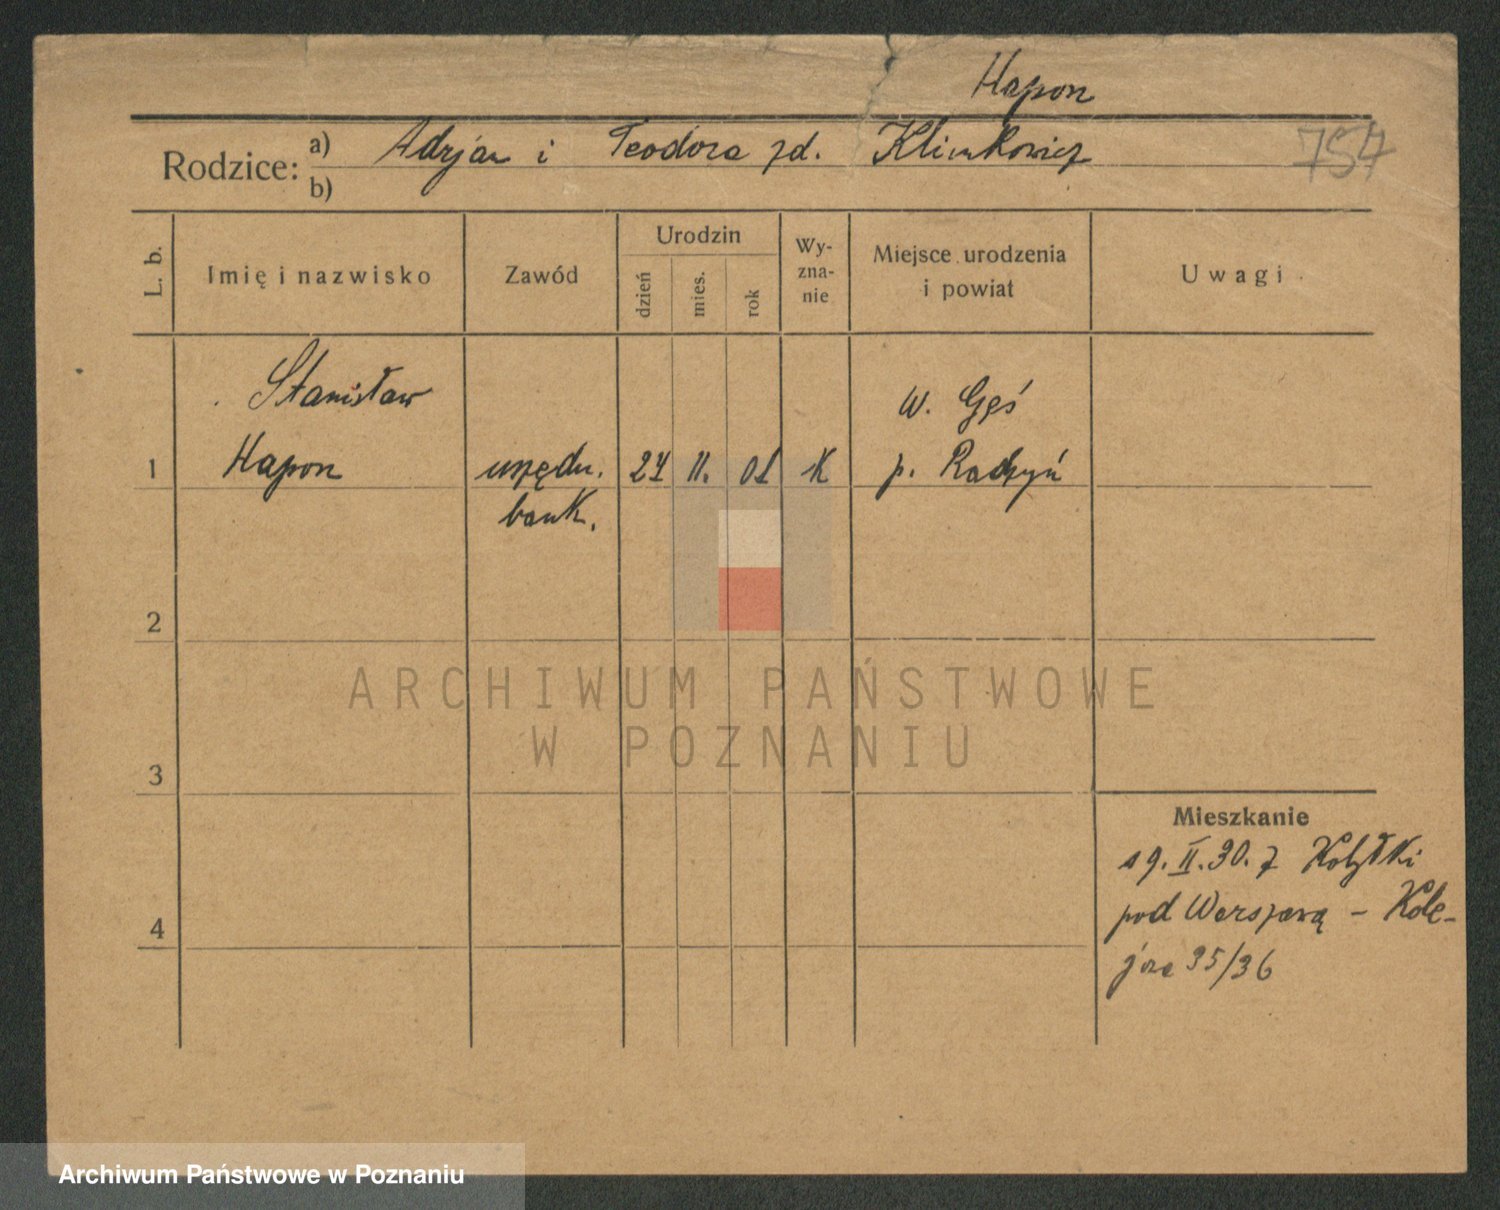 Hapon
754
Rodzice: a) Adrjan i Teodora zd. Klimkowicz
b)
L. b.
Imię i nazwisko
Zawód
Urodzin
dzień
mies.
rok
Wy-
zna-
nie
Miejsce urodzenia
i powiat
Uwagi
Stanisław
w. Gęś
1 Hapon urzędn. 24 11. 01 K p. Radzyń
bank.
2
ARCHIWUM PAŃSTWOWE
W POZNANIU
3
Mieszkanie
19. II. 30. z Kobyłki
pod Warszawą - Kole-
jowa 35/36
4
Archiwum Państwowe w Poznaniu